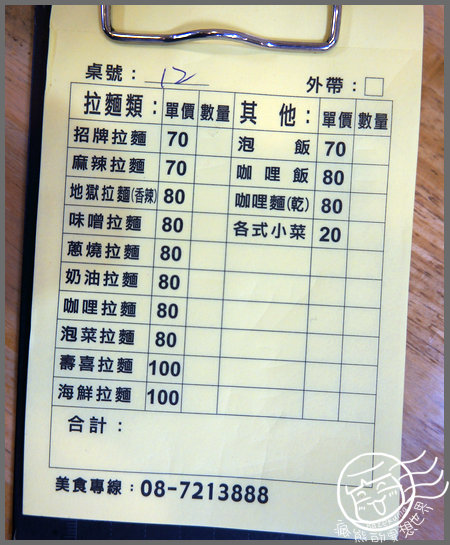 桌號：12
外帶：□
拉麵類： 單價 數量 其他： 單價 數量
招牌拉麵 70 泡飯 70
麻辣拉麵 70 咖哩飯 80
地獄拉麵(香辣) 80 咖哩麵(乾) 80
味噌拉麵 80 各式小菜 20
蔥燒拉麵 80
奶油拉麵 80
咖哩拉麵 80
泡菜拉麵 80
壽喜拉麵 100
海鮮拉麵 100
合計：
美食專線：08-7213888
瘋熊的異想世界